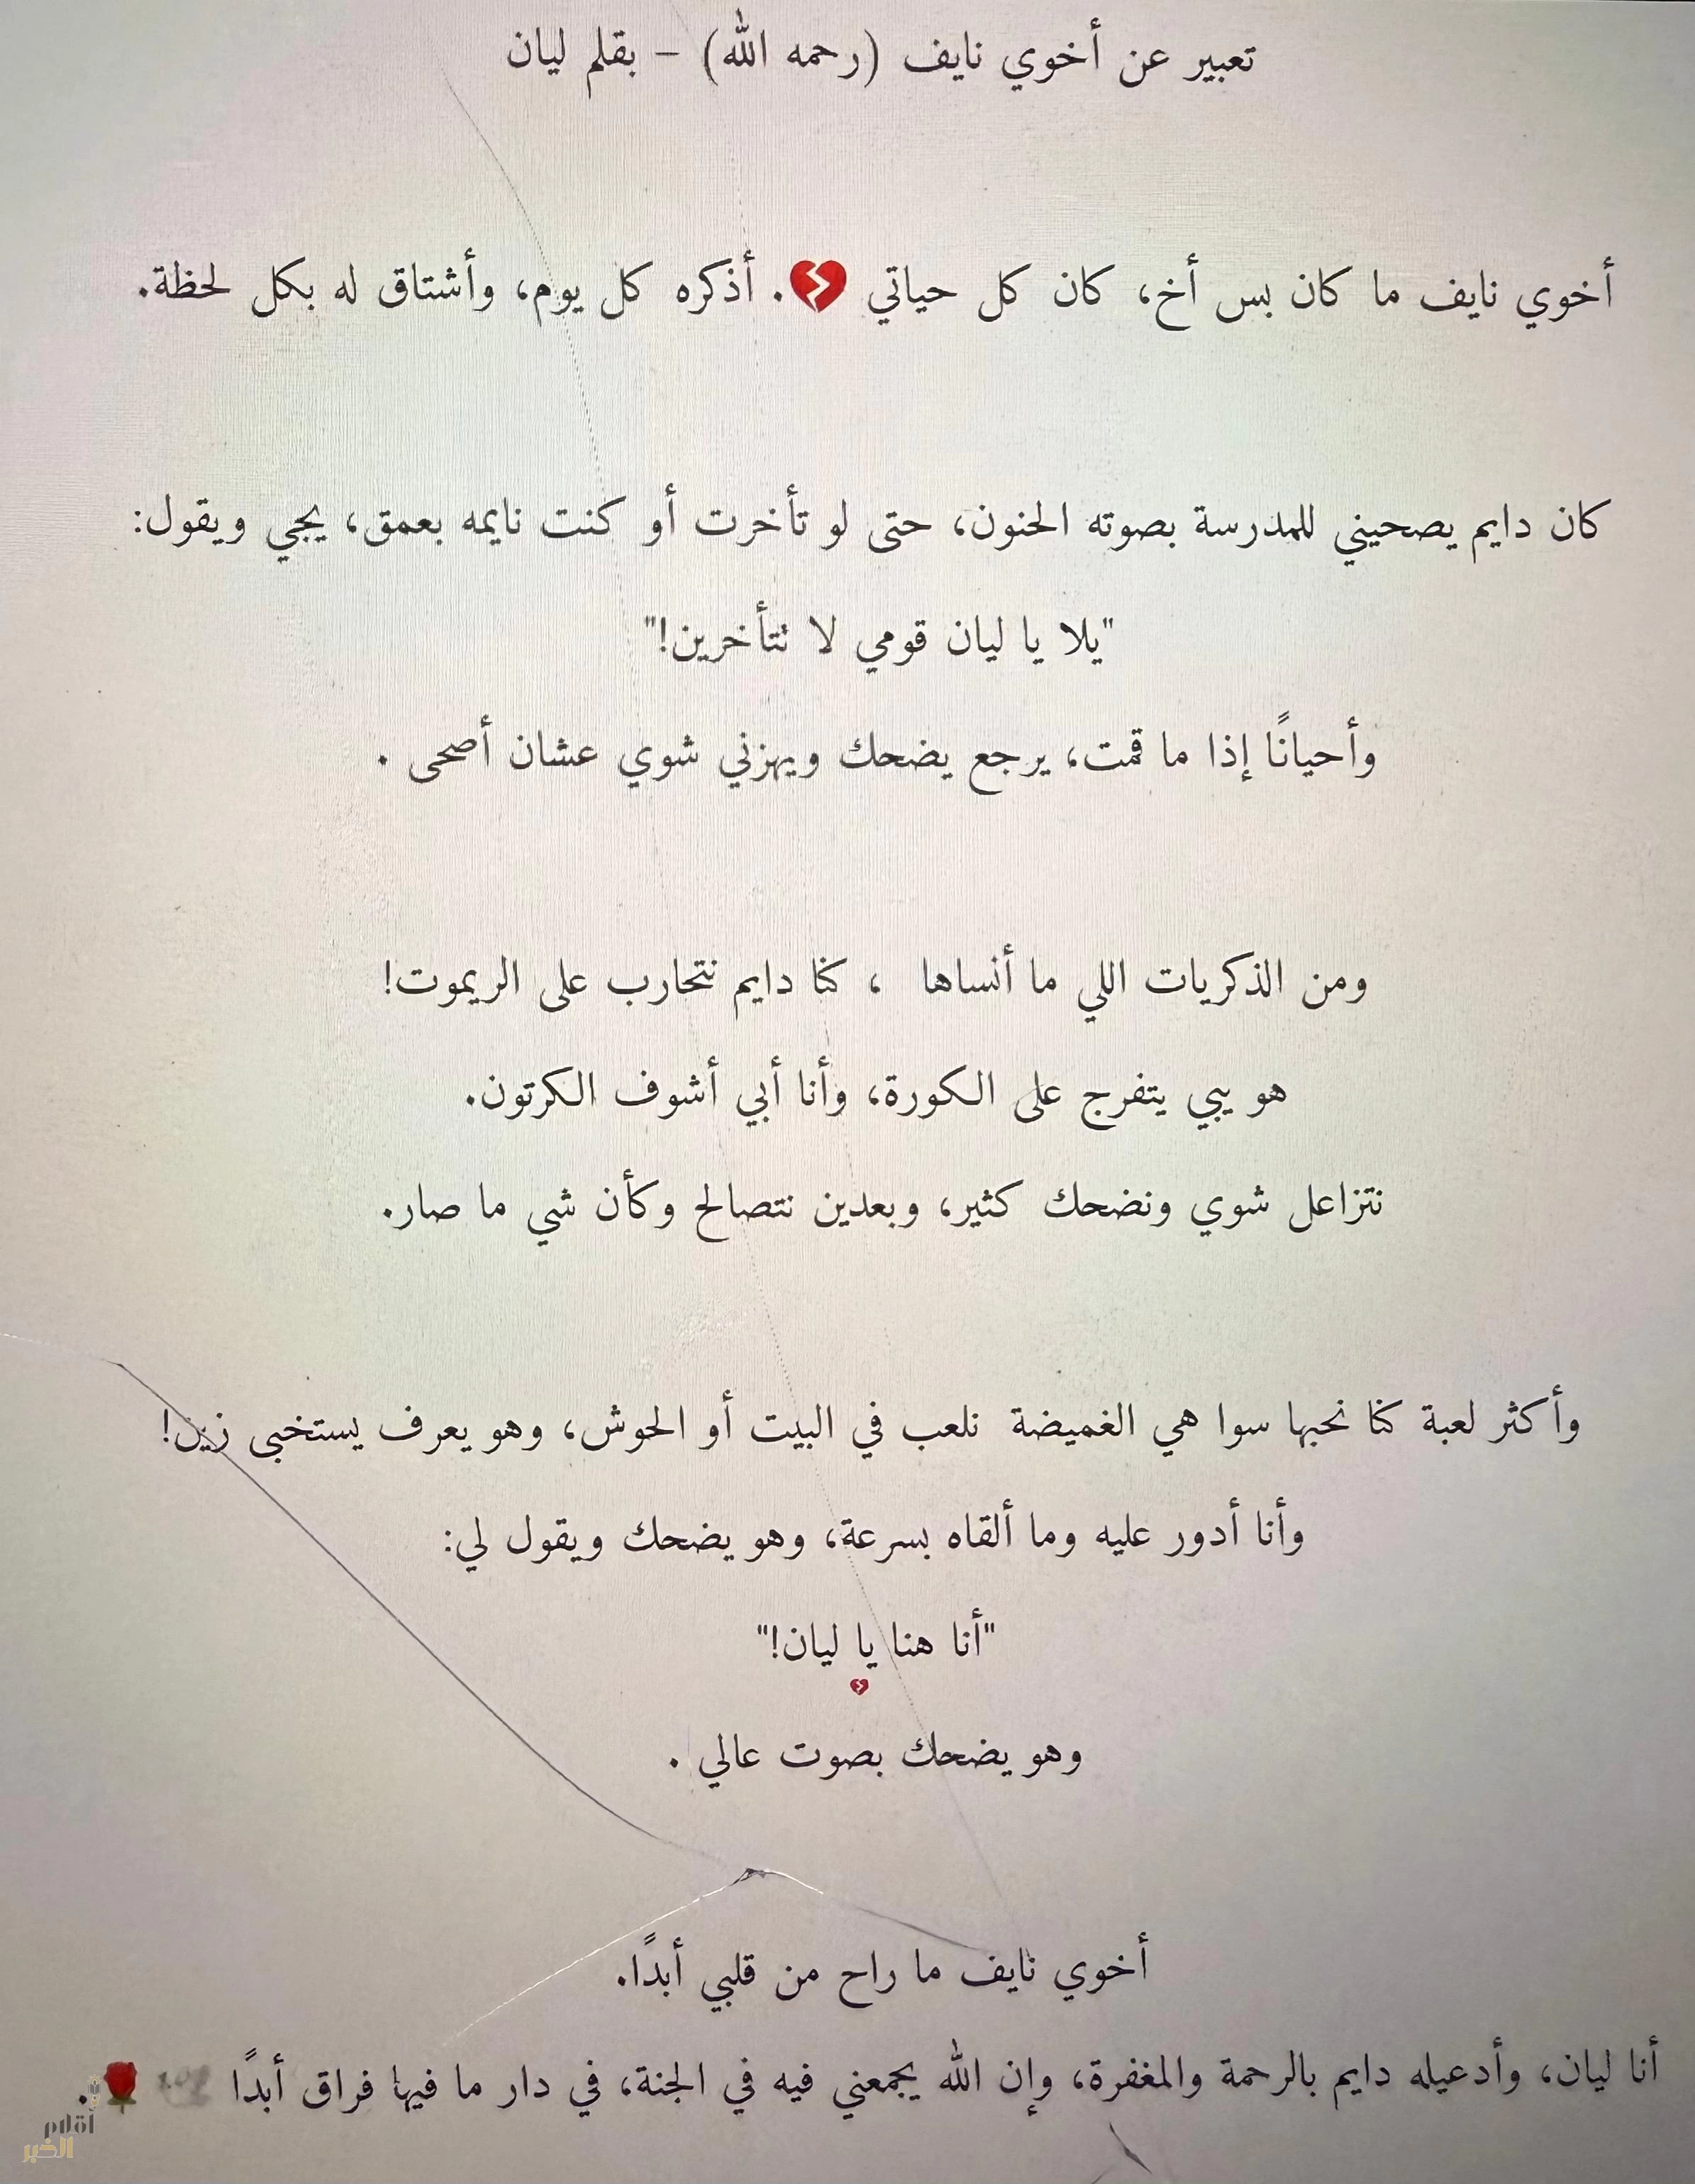 تعبير عن أخوي نايف (رحمه الله) – بقلم ليان
أخوي نايف ما كان بس أخ، كان كل حياتي 💔. أذكره كل يوم، وأشتاق له بكل لحظة.
كان دايم يصحيني للمدرسة بصوته الحنون، حتى لو تأخرت أو كنت نايمه بعمق، يجي ويقول:
"يلا يا ليان قومي لا تتأخرين!"
وأحيانًا إذا ما قمت، يرجع يضحك ويهزني شوي عشان أصحى .
ومن الذكريات اللي ما أنساها ، كنا دايم نتحارب على الريموت!
هو يبي يتفرج على الكورة، وأنا أبي أشوف الكرتون.
نتزاعل شوي ونضحك كثير، وبعدين نتصالح وكأن شي ما صار.
وأكثر لعبة كنا نحبها سوا هي الغميضة نلعب في البيت أو الحوش، وهو يعرف يستخبى زين!
وأنا أدور عليه وما ألقاه بسرعة، وهو يضحك ويقول لي:
"أنا هنا يا ليان!"
💔
وهو يضحك بصوت عالي .
أخوي نايف ما راح من قلبي أبدًا.
أنا ليان، وأدعيله دايم بالرحمة والمغفرة، وإن الله يجمعني فيه في الجنة، في دار ما فيها فراق أبدًا 🕊🌹.
أقلام
الخبر